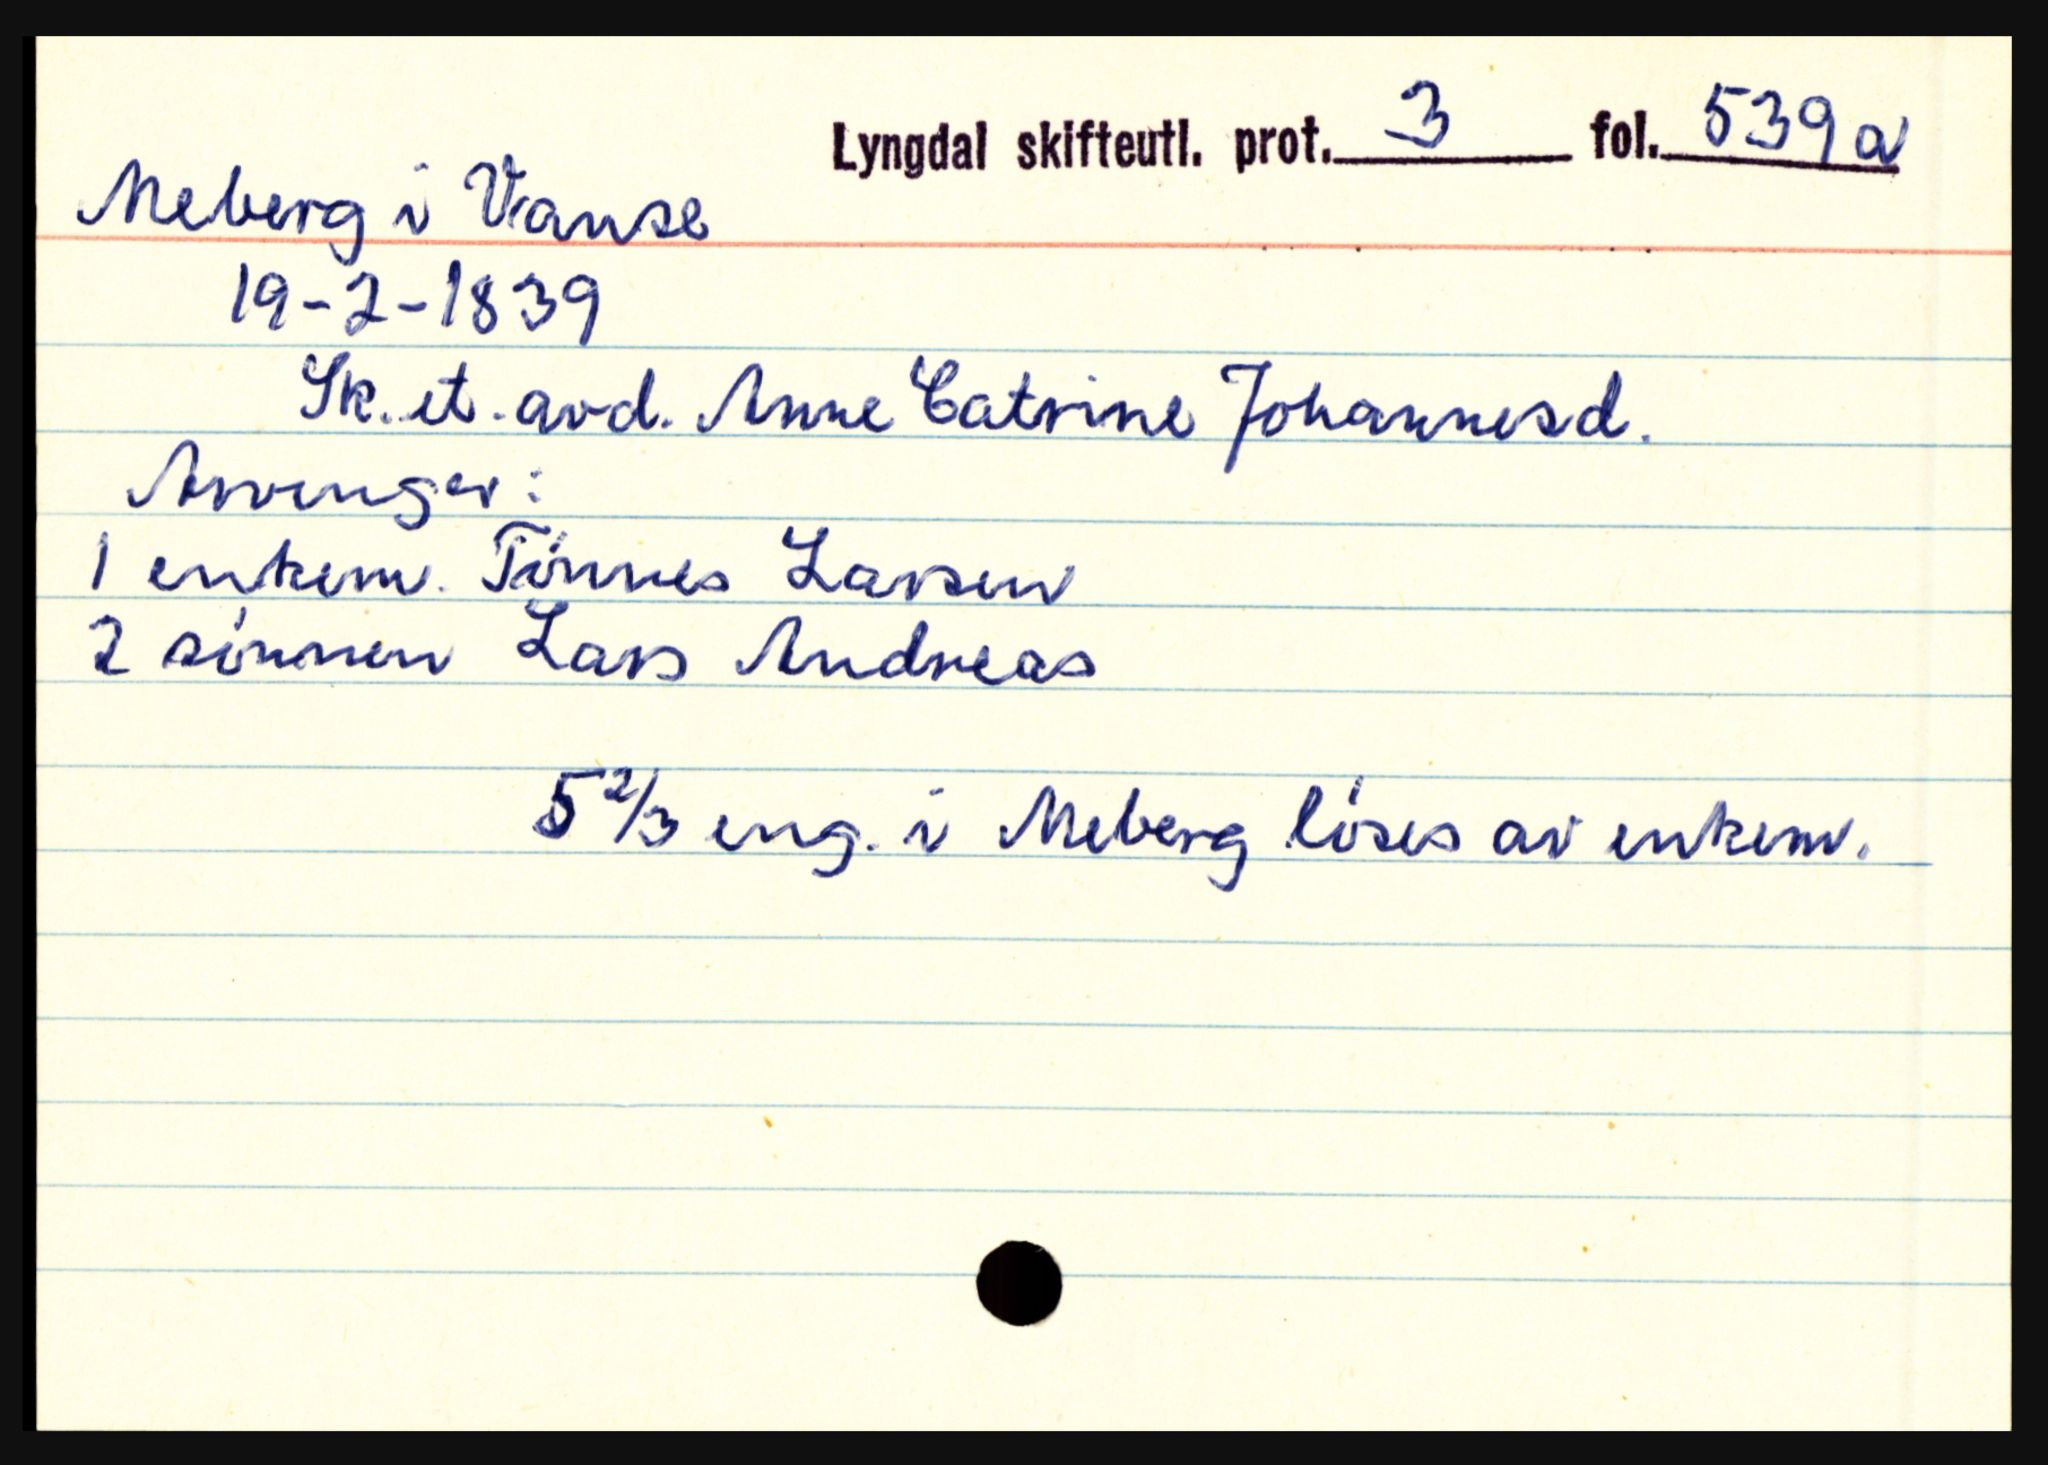 Lyngdal skifteutl. prot. 3 fol. 539a
Meberg i Vanse
19-2-1839
Sk. et. avd. Anne Catrine Johannesd.
Arvinger:
1 enkem. Tönnes Larsen
2 sönnen Lars Andreas
5 2/3 eng. i Meberg löses av enkem.